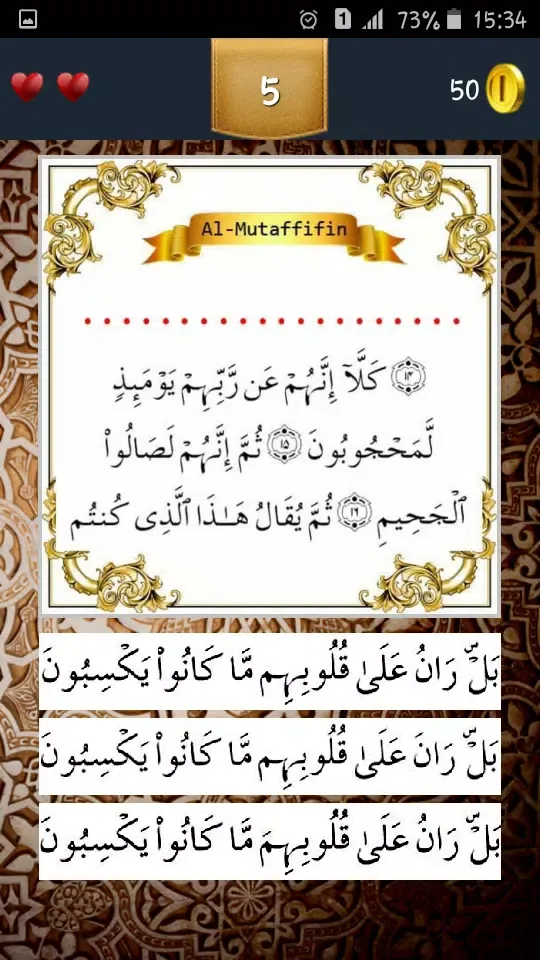 73% 15:34
5
50
Al-Mutaffifin
١٤ كَلَّآ إِنَّهُمْ عَن رَّبِّهِمْ يَوْمَئِذٍ
لَّمَحْجُوبُونَ ١٥ ثُمَّ إِنَّهُمْ لَصَالُوا۟
ٱلْجَحِيمِ ١٦ ثُمَّ يُقَالُ هَـٰذَا ٱلَّذِى كُنتُم
بَلْۜ رَانُ عَلَىٰ قُلُوبِهِم مَّا كَانُوا۟ يَكْسِبُونَ
بَلْۜ رَانَ عَلَىٰ قُلُوبِهِم مَّا كَانُوا۟ يَكْسِبُونَ
بَلْۜ رَانُ عَلَىٰ قُلُوبِهِمَ مَّا كَانُوا۟ يَكْسِبُونَ